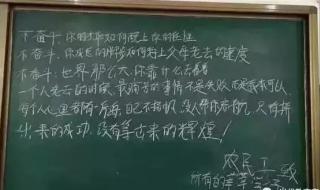 不奋斗，你的才华如何配上你的任性
不奋斗，你成长的脚步如何赶上父母老去的速度
不奋斗，世界那么大，你靠什么去看看
一个人老去的时候，最痛苦的事情，不是失败，而是我本可以
每个人心里都有一片海，自己不扬帆，没人帮你启航，只有拼
出来的成功，没有等出来的辉煌！
农民工